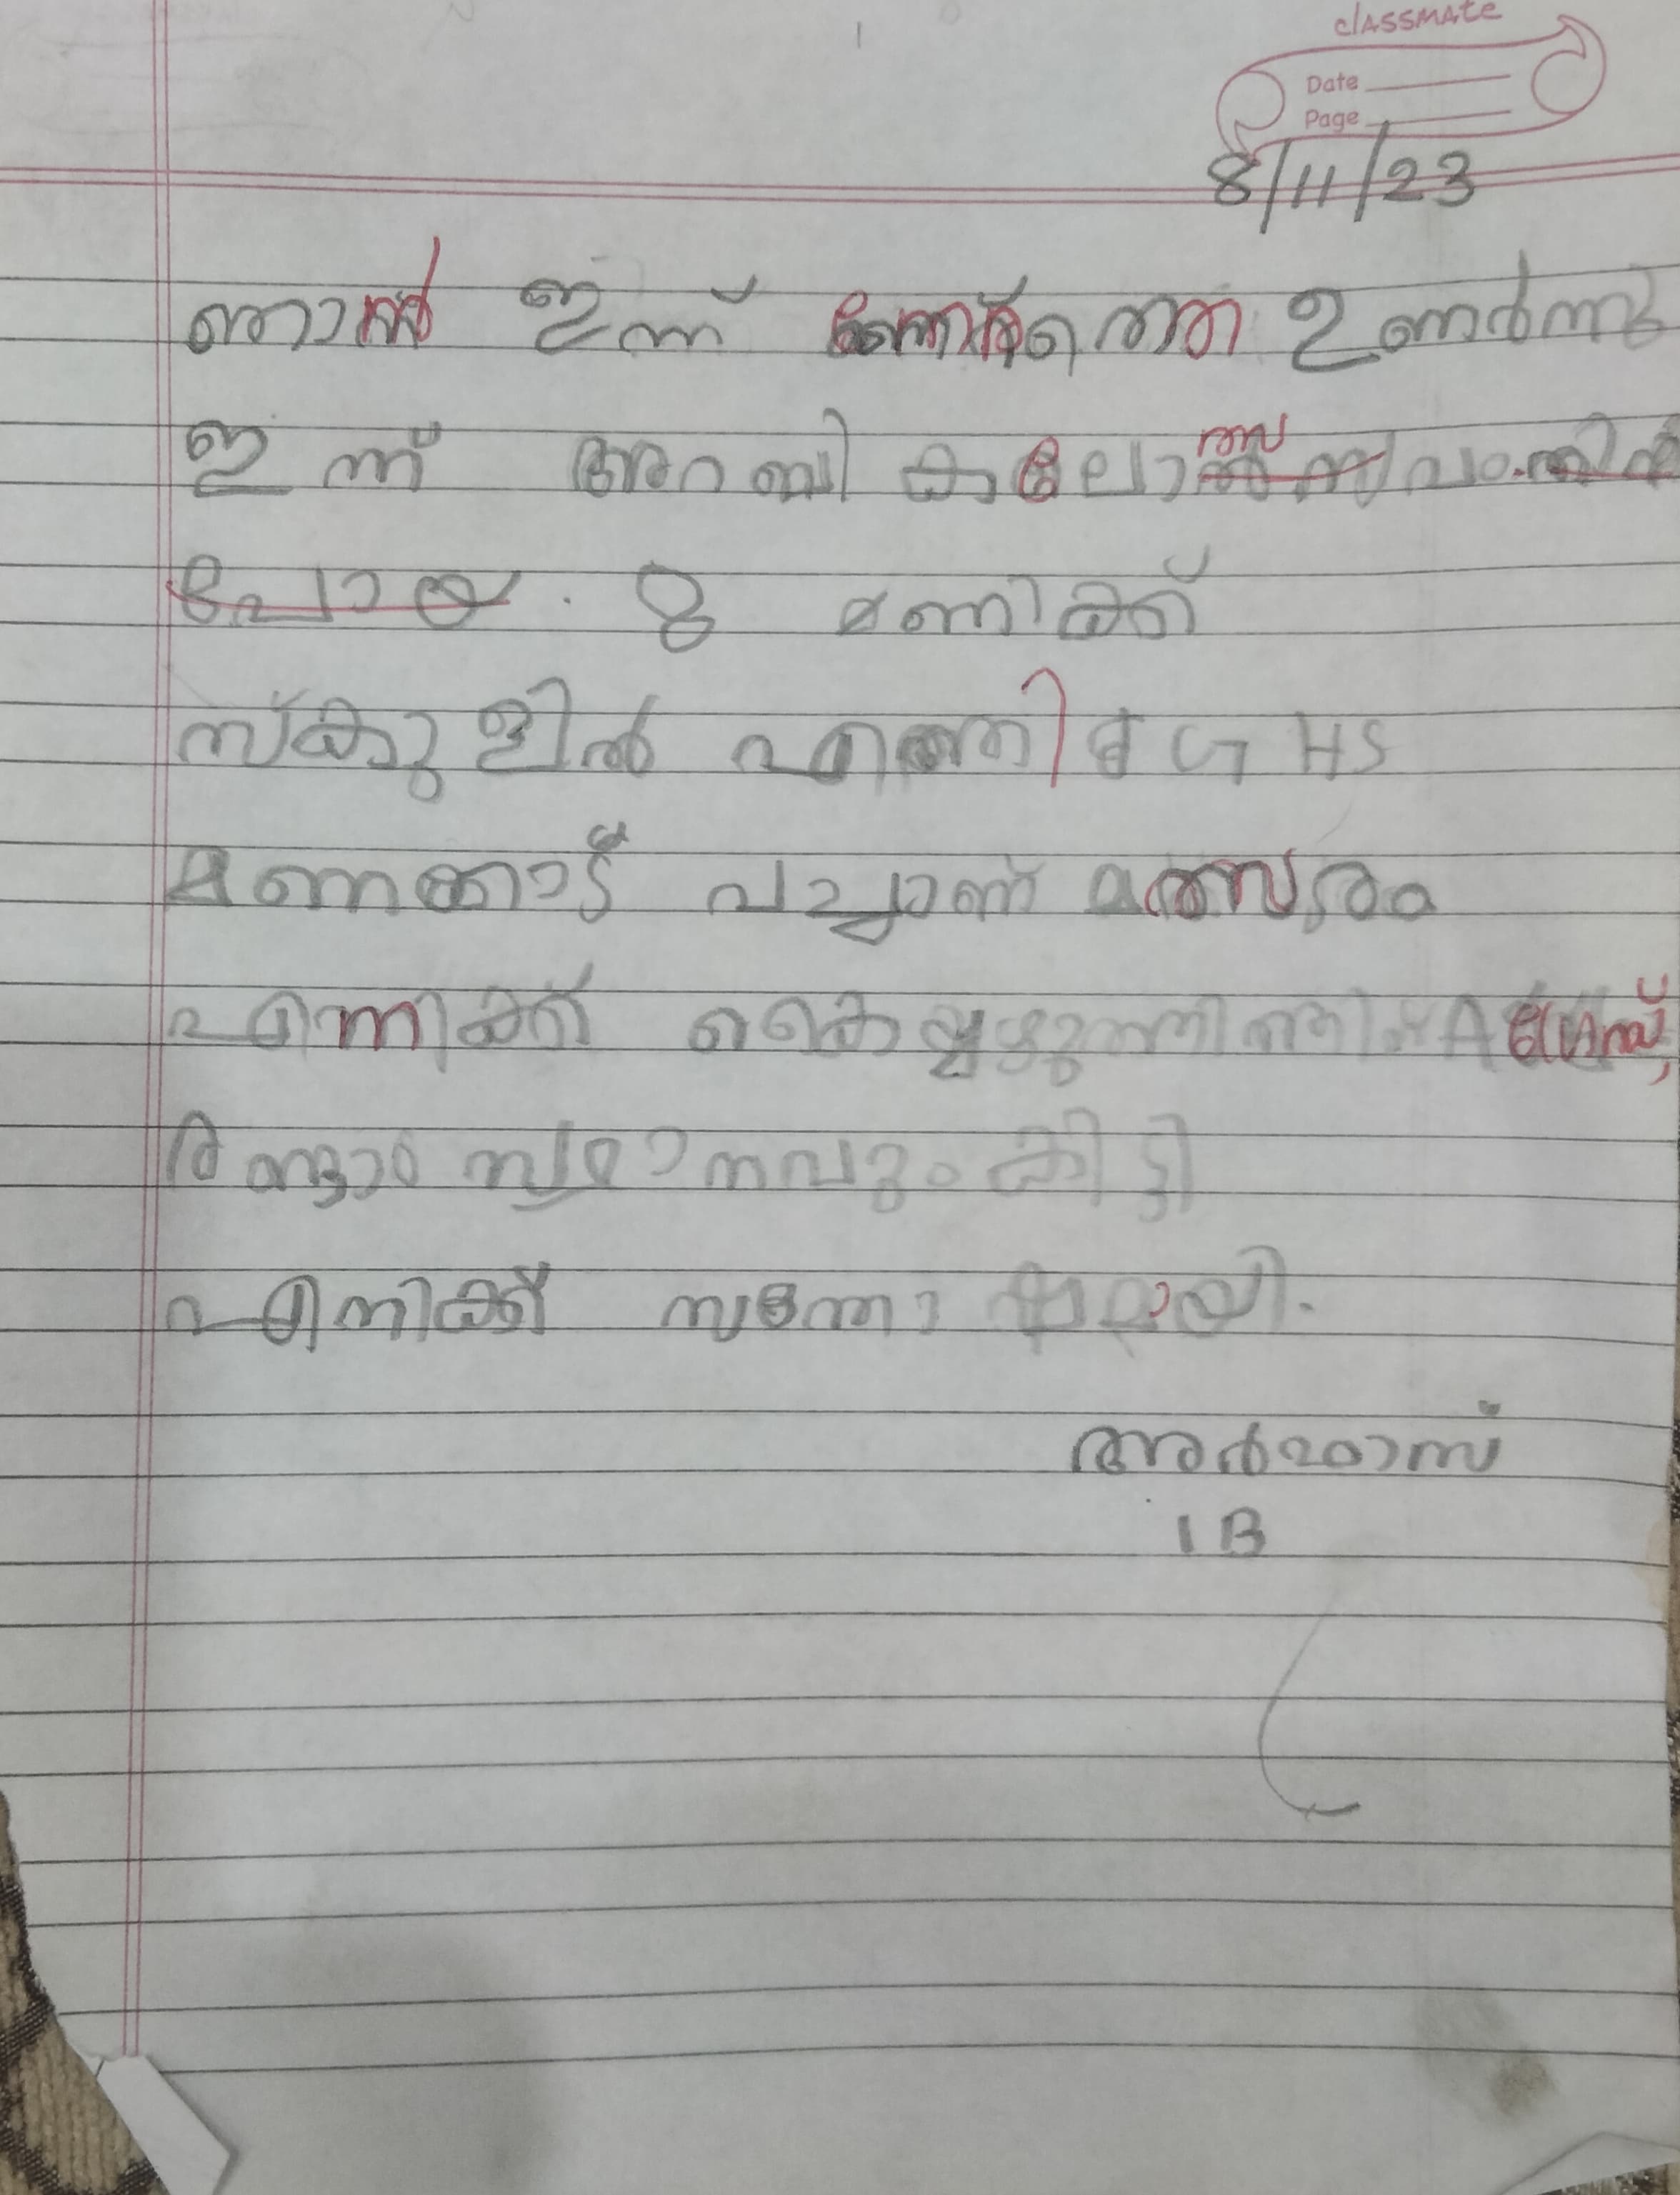 classmate
Date
Page
8/11/23
ഞാൻ ഇന്ന് നേരത്തെ ഉണർന്നു
ഇന്ന് അറബി കലോത്സവത്തിൽ
പോയ. 8 മണിക്ക്
സ്കുളിൽ എത്തി GHS
മണക്കാട് വച്ചാണ് മത്സരം
എനിക്ക് കൈയ്യെഴുത്തിന് A ഗ്രേഡ്,
രണ്ടാം സ്ഥാനവും കിട്ടി
എനിക്ക് സന്തോഷമായി.
അർഫാസ്
1 B